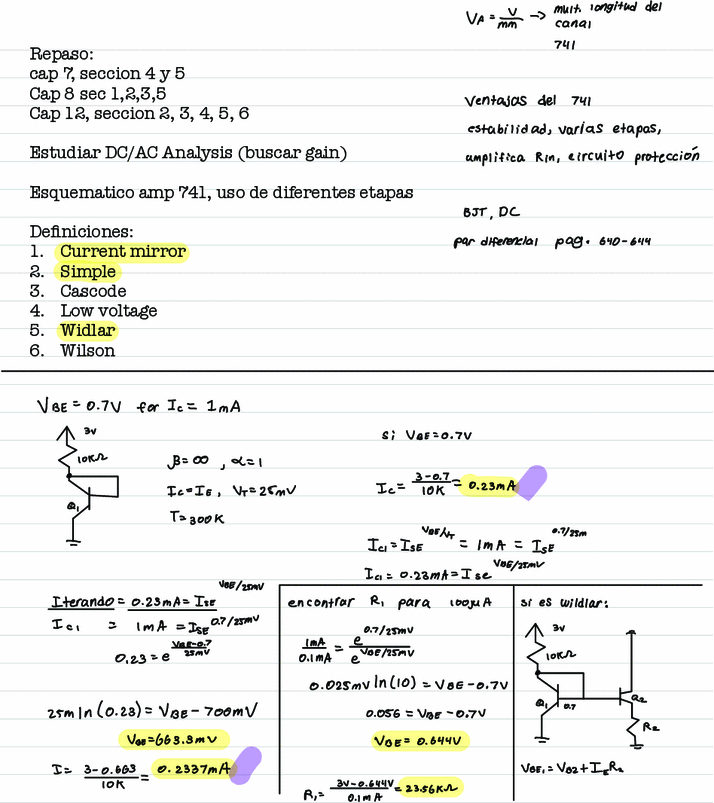 V_A = V/mm -> mult. longitud del
canal
741
Repaso:
cap 7, seccion 4 y 5
Cap 8 sec 1,2,3,5
Cap 12, seccion 2, 3, 4, 5, 6
Ventajas del 741
estabilidad, varias etapas,
amplifica Rin, circuito protección
Estudiar DC/AC Analysis (buscar gain)
Esquematico amp 741, uso de diferentes etapas
BJT, DC
par diferencial pag. 640-644
Definiciones:
1. Current mirror
2. Simple
3. Cascode
4. Low voltage
5. Widlar
6. Wilson
V_BE = 0.7V for I_C = 1mA
3V
10KΩ
Q1
β=∞, α=1
I_C=I_E, V_T=25mV
T=300K
si V_BE=0.7V
I_C = (3-0.7)/10K = 0.23mA
I_C1 = I_SE^(V_BE/V_T) = 1mA = I_SE^(0.7/25m)
I_C1 = 0.23mA = I_se^(V_BE/25mV)
Iterando = 0.23mA = I_SE^(V_BE/25mV)
I_C1 = 1mA = I_SE^(0.7/25mV)
0.23 = e^((V_BE-0.7)/25mV)
25m ln(0.23) = V_BE - 700mV
V_BE = 663.3mV
I = (3-0.663)/10K = 0.2337mA
encontrar R1 para 100μA
1mA/0.1mA = e^(0.7/25mV)/e^(V_BE/25mV)
0.025mV ln(10) = V_BE - 0.7V
0.056 = V_BE - 0.7V
V_BE = 0.644V
R1 = (3V-0.644V)/0.1mA = 23.56KΩ
si es wildlar:
3V
10KΩ
Q1
0.7
Q2
R2
V_BE1 = V_B2 + I_E R2